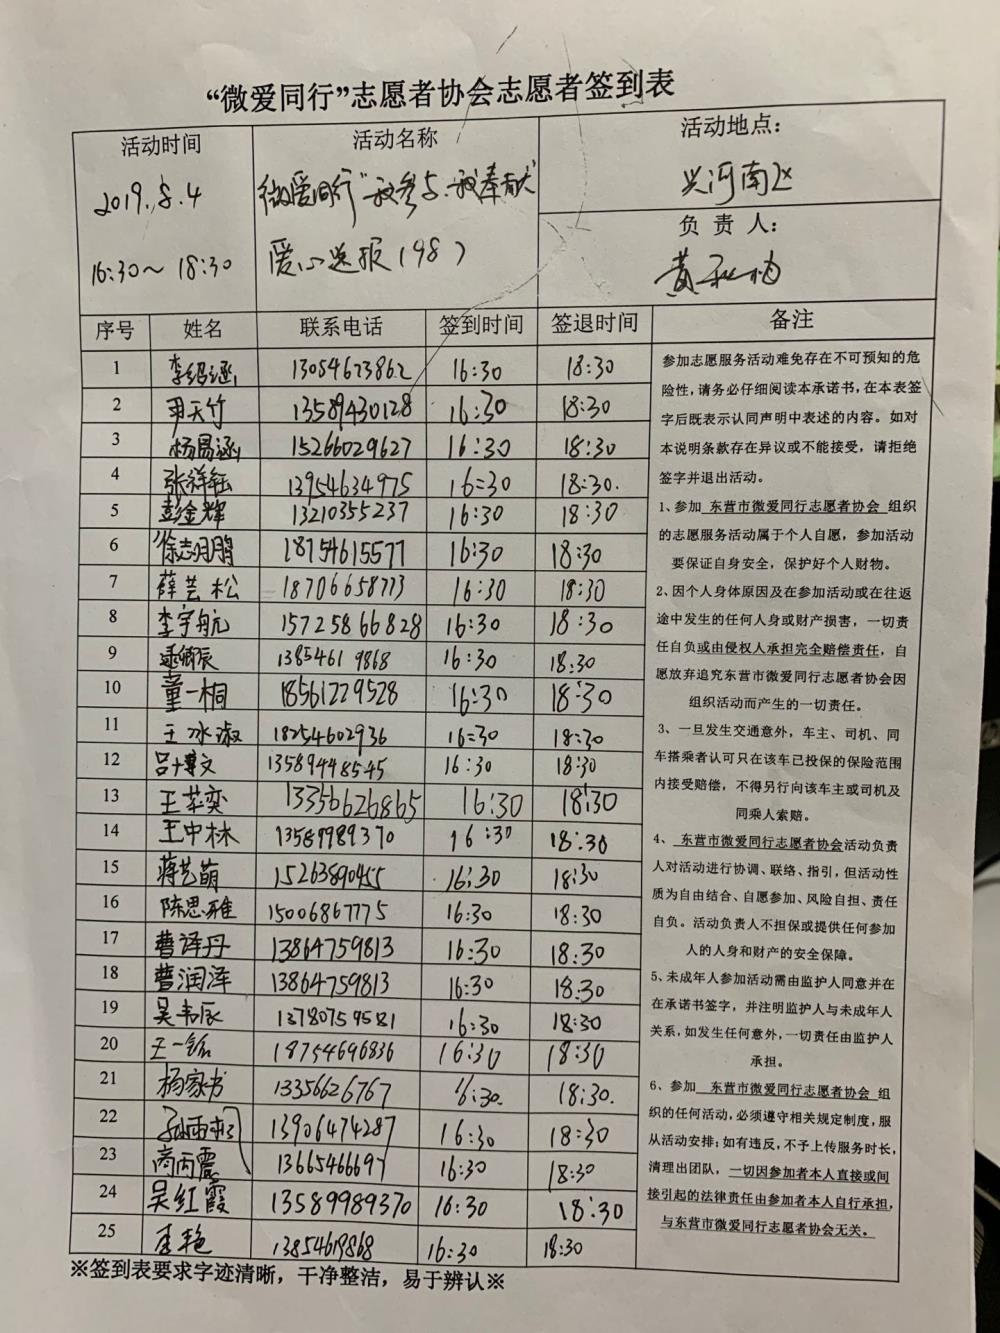 “微爱同行”志愿者协会志愿者签到表
活动时间
2019.8.4
16:30～18:30
活动名称
微爱同行“我参与.我奉献”
爱心送报(98)
活动地点:
兴河南区
负 责 人:
序号 姓名 联系电话 签到时间 签退时间 备注
1 李绍涵 13054623862 16:30 18:30
2 天竹 13589430128 16:30 18:30
3 杨昌涵 15266029627 16:30 18:30
4 张祥钰 13954634975 16:30 18:30.
5 彭金辉 13210355237 16:30 18:30
6 徐志鹏 18754615577 16:30 18:30
7 薛芸松 18706658773 16:30 18:30
8 李宇航 15725866828 16:30 18:30
9 辰 13854619868 16:30 18:30
10 董一桐 18561229528 16:30 18:30
11 王冰淑 18254602936 16:30 18:30
12 吕博文 13589448545 16:30 18:30
13 王莘奕 13356626865 16:30 18:30
14 王中林 13589989370 16:30 18:30
15 蒋艺萌 15263890455 16:30 18:30
16 陈思雅 15006867775 16:30 18:30
17 曹译丹 13864759813 16:30 18:30
18 曹润泽 13864759813 16:30 18:30
19 吴韦辰 13780759581 16:30 18:30
20 王一 18754696836 16:30 18:30
21 杨家书 13356626767 16:30. 18:30.
22 孙雨 13906474287 16:30 18:30
23 商丙震 13665466697 16:30 18:30
24 吴红霞 13589989370 16:30 18:30
25 李艳 13854619868 16:30 18:30
参加志愿服务活动难免存在不可预知的危
险性,请务必仔细阅读本承诺书,在本表签
字后既表示认同声明中表述的内容。如对
本说明条款存在异议或不能接受,请拒绝
签字并退出活动。
1、参加 东营市微爱同行志愿者协会 组织
的志愿服务活动属于个人自愿,参加活动
要保证自身安全,保护好个人财物。
2、因个人身体原因及在参加活动或在往返
途中发生的任何人身或财产损害,一切责
任自负或由侵权人承担完全赔偿责任,自
愿放弃追究东营市微爱同行志愿者协会因
组织活动而产生的一切责任。
3、一旦发生交通意外,车主、司机、同
车搭乘者认可只在该车已投保的保险范围
内接受赔偿,不得另行向该车主或司机及
同乘人索赔。
4、 东营市微爱同行志愿者协会活动负责
人对活动进行协调、联络、指引,但活动性
质为自由结合、自愿参加、风险自担、责任
自负。活动负责人不担保或提供任何参加
人的人身和财产的安全保障。
5、未成年人参加活动需由监护人同意并在
在承诺书签字,并注明监护人与未成年人
关系,如发生任何意外,一切责任由监护人
承担。
6、参加 东营市微爱同行志愿者协会 组
织的任何活动,必须遵守相关规定制度,服
从活动安排;如有违反,不予上传服务时长,
清理出团队,一切因参加者本人直接或间
接引起的法律责任由参加者本人自行承担,
与东营市微爱同行志愿者协会无关。
※签到表要求字迹清晰，干净整洁，易于辨认※